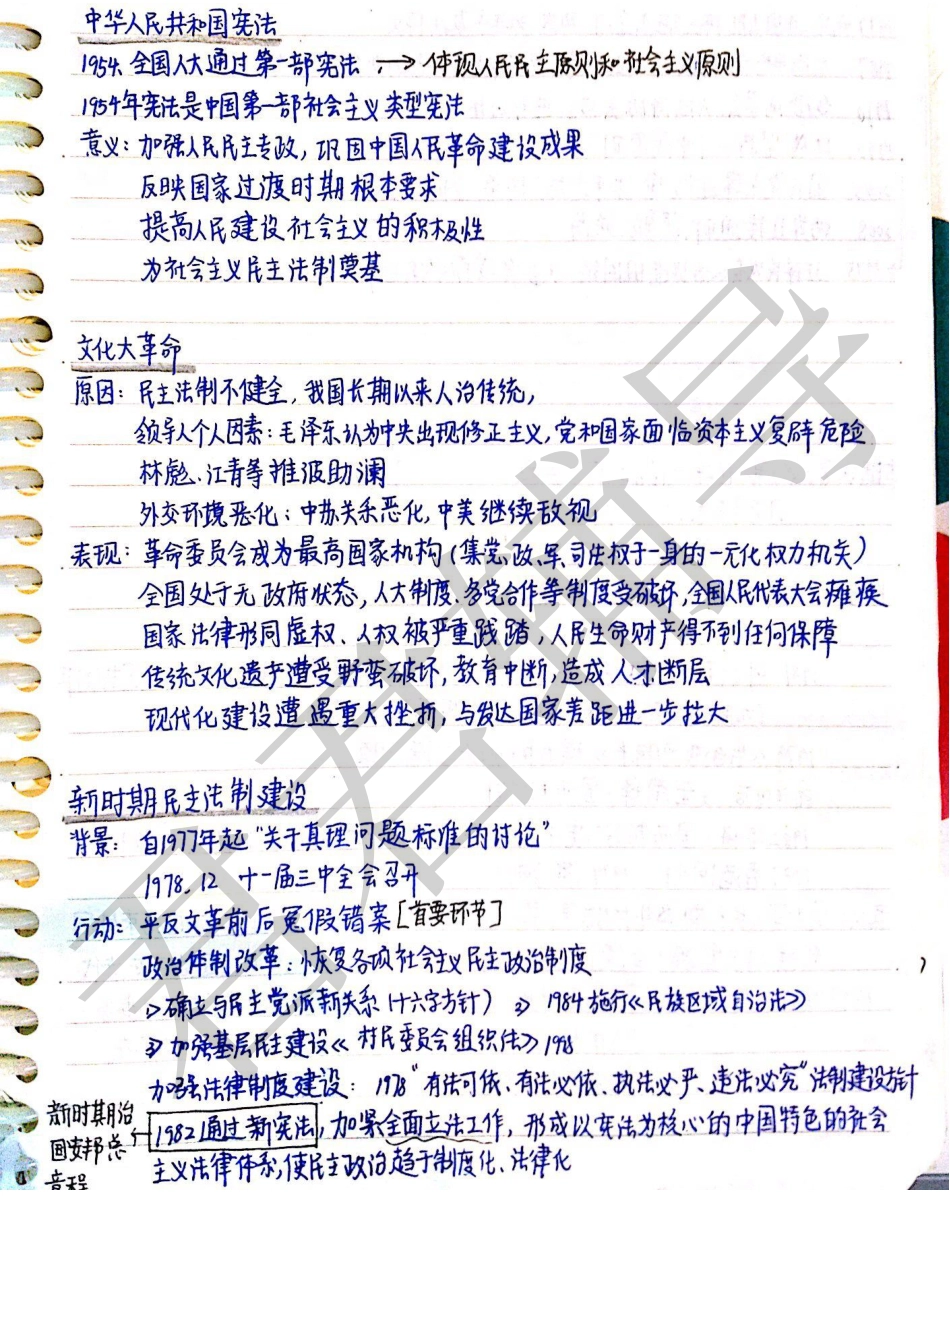 中华人民共和国宪法
1954.全国人大通过第一部宪法 → 体现人民民主原则和社会主义原则
1954年宪法是中国第一部社会主义类型宪法
意义：加强人民民主专政，巩固中国人民革命建设成果
反映国家过渡时期根本要求
提高人民建设社会主义的积极性
为社会主义民主法制奠基
文化大革命
原因：民主法制不健全，我国长期以来人治传统，
领导人个人因素：毛泽东认为中央出现修正主义，党和国家面临资本主义复辟危险
林彪、江青等推波助澜
外交环境恶化：中苏关系恶化，中美继续敌视
表现：革命委员会成为最高国家机构（集党、政、军、司法权于一身的一元化权力机关）
全国处于无政府状态，人大制度、多党合作等制度受破坏，全国人民代表大会瘫痪
国家法律形同虚权、人权被严重践踏，人民生命财产得不到任何保障
传统文化遗产遭受野蛮破坏，教育中断，造成人才断层
现代化建设遭遇重大挫折，与发达国家差距进一步拉大
新时期民主法制建设
背景：自1977年起“关于真理问题标准的讨论”
1978.12 十一届三中全会召开
行动：平反文革前后冤假错案[首要环节]
政治体制改革：恢复各项社会主义民主政治制度
⇒确立与民主党派新关系（十六字方针） ⇒ 1984施行《民族区域自治法》
⇒加强基层民主建设《村民委员会组织法》198
加强法律制度建设：1978“有法可依、有法必依、执法必严、违法必究”法制建设方针
新时期治国安邦总章程 ← 1982通过新宪法，加紧全面立法工作，形成以宪法为核心的中国特色的社会
主义法律体系，使民主政治趋于制度化、法律化
君君辅导